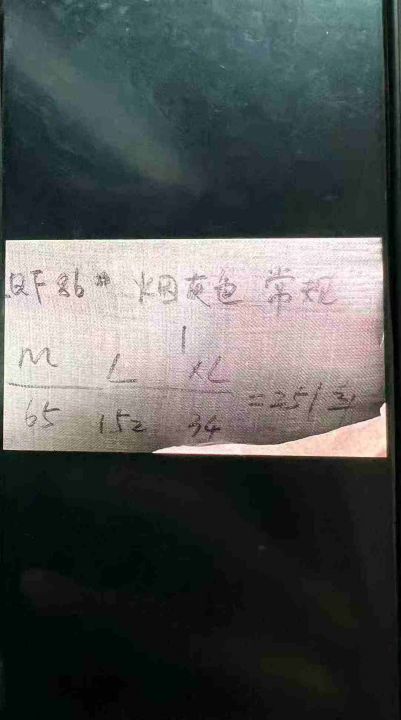 QF86# 烟灰色 常规
M L XL
65 152 34 =251